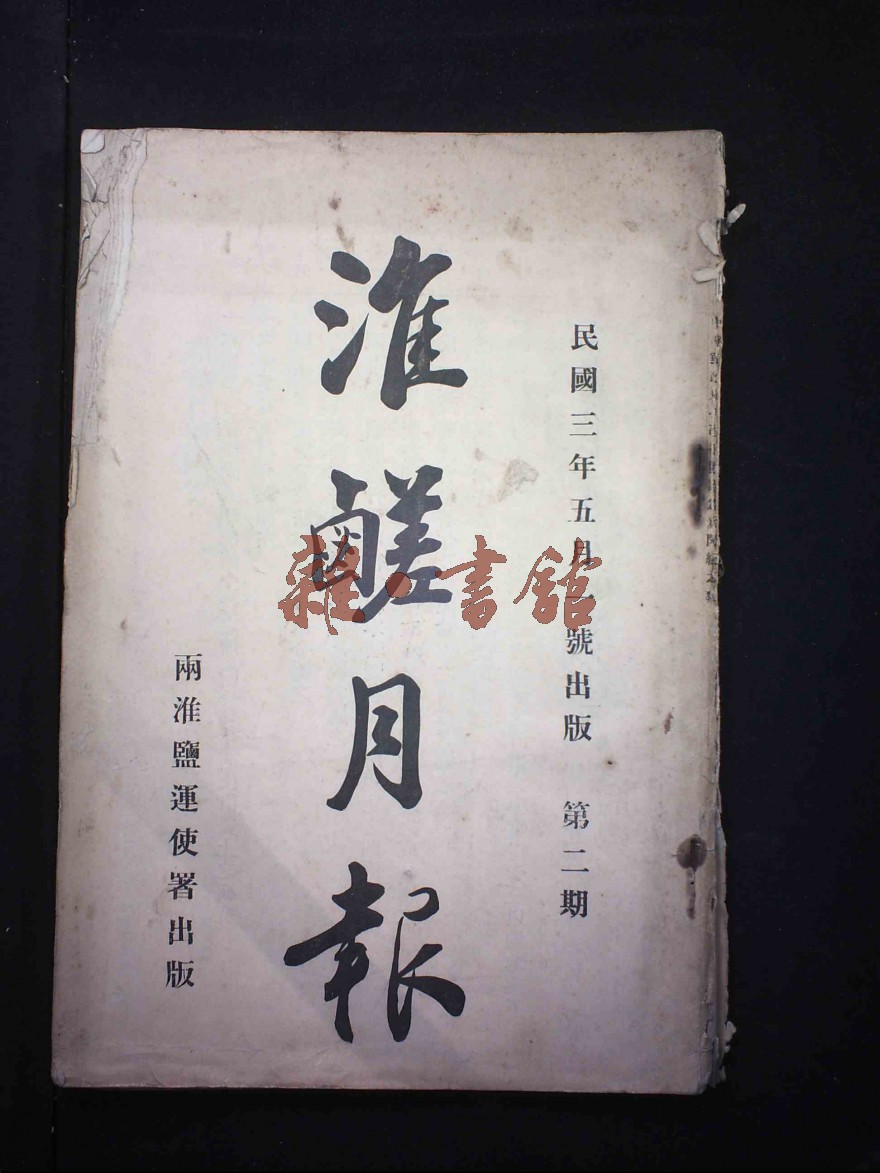 民國三年五月一號出版 第二期
淮鹺月報
兩淮鹽運使署出版
雜·書館